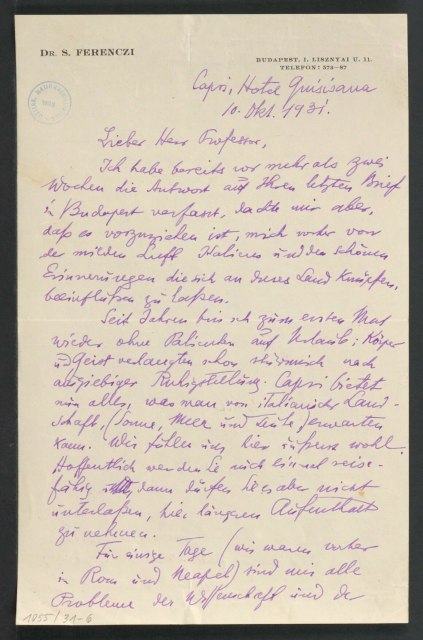 DR. S. FERENCZI
BUDAPEST, I. LISZNYAI U. 11.
TELEFON: 573-87
Capri, Hotel Quisisana
10. Okt. 1931.
Lieber Herr Professor,
Ich habe bereits vor mehr als zwei
Wochen die Antwort auf Ihren letzten Brief
in Budapest verfasst, dachte mir aber,
daß es vorzuziehen ist, mich vorher von
der milden Luft Italiens und den schönen
Erinnerungen die sich an dieses Land knüpfen,
beeinflußen zu laßen.
Seit Jahren bin ich zum ersten Mal
wieder ohne Patienten auf Urlaub; Körper
und Geist verlangten schon stürmisch nach
ausgiebiger Ruhigstellung. Capri bietet
nun alles, was man von italienischer Land-
schaft, (Sonne, Meer und Leute) erwarten
kann. Wir fühlen uns hier äußerst wohl.
Hoffentlich werden Sie noch einmal reise-
fähig dann dürfen Sie es aber nicht
unterlaßen, hier längeren Aufenthalt
zu nehmen.
Für einige Tage (wir waren vorher
in Rom und Neapel) sind mir alle
Probleme der Wissenschaft und der
1055/31-6